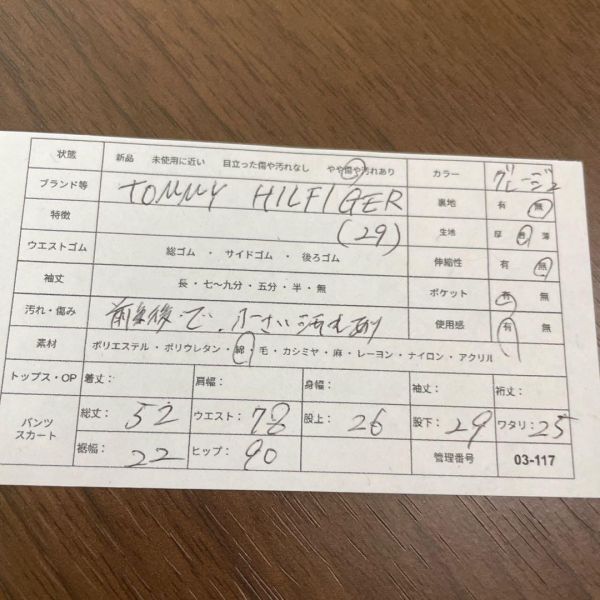 状態 新品 未使用に近い 目立った傷や汚れなし やや傷や汚れあり カラー グレージュ
ブランド等 TOMMY HILFIGER 裏地 有 無
特徴 (29) 生地 厚 普 薄
ウエストゴム 総ゴム ・ サイドゴム ・ 後ろゴム 伸縮性 有 無
袖丈 長 ・ 七～九分 ・ 五分 ・ 半 ・ 無 ポケット 有 無
汚れ・傷み 前 後で、小さい汚れあり 使用感 有 無
素材 ポリエステル ・ ポリウレタン ・ 綿 ・ 毛 ・ カシミヤ ・ 麻 ・ レーヨン ・ ナイロン ・ アクリル
トップス・OP 着丈： 肩幅： 身幅： 袖丈： 裄丈：
パンツ スカート 総丈： 52 ウエスト： 78 股上： 26 股下： 29 ワタリ： 25
裾幅： 22 ヒップ： 90 管理番号 03-117